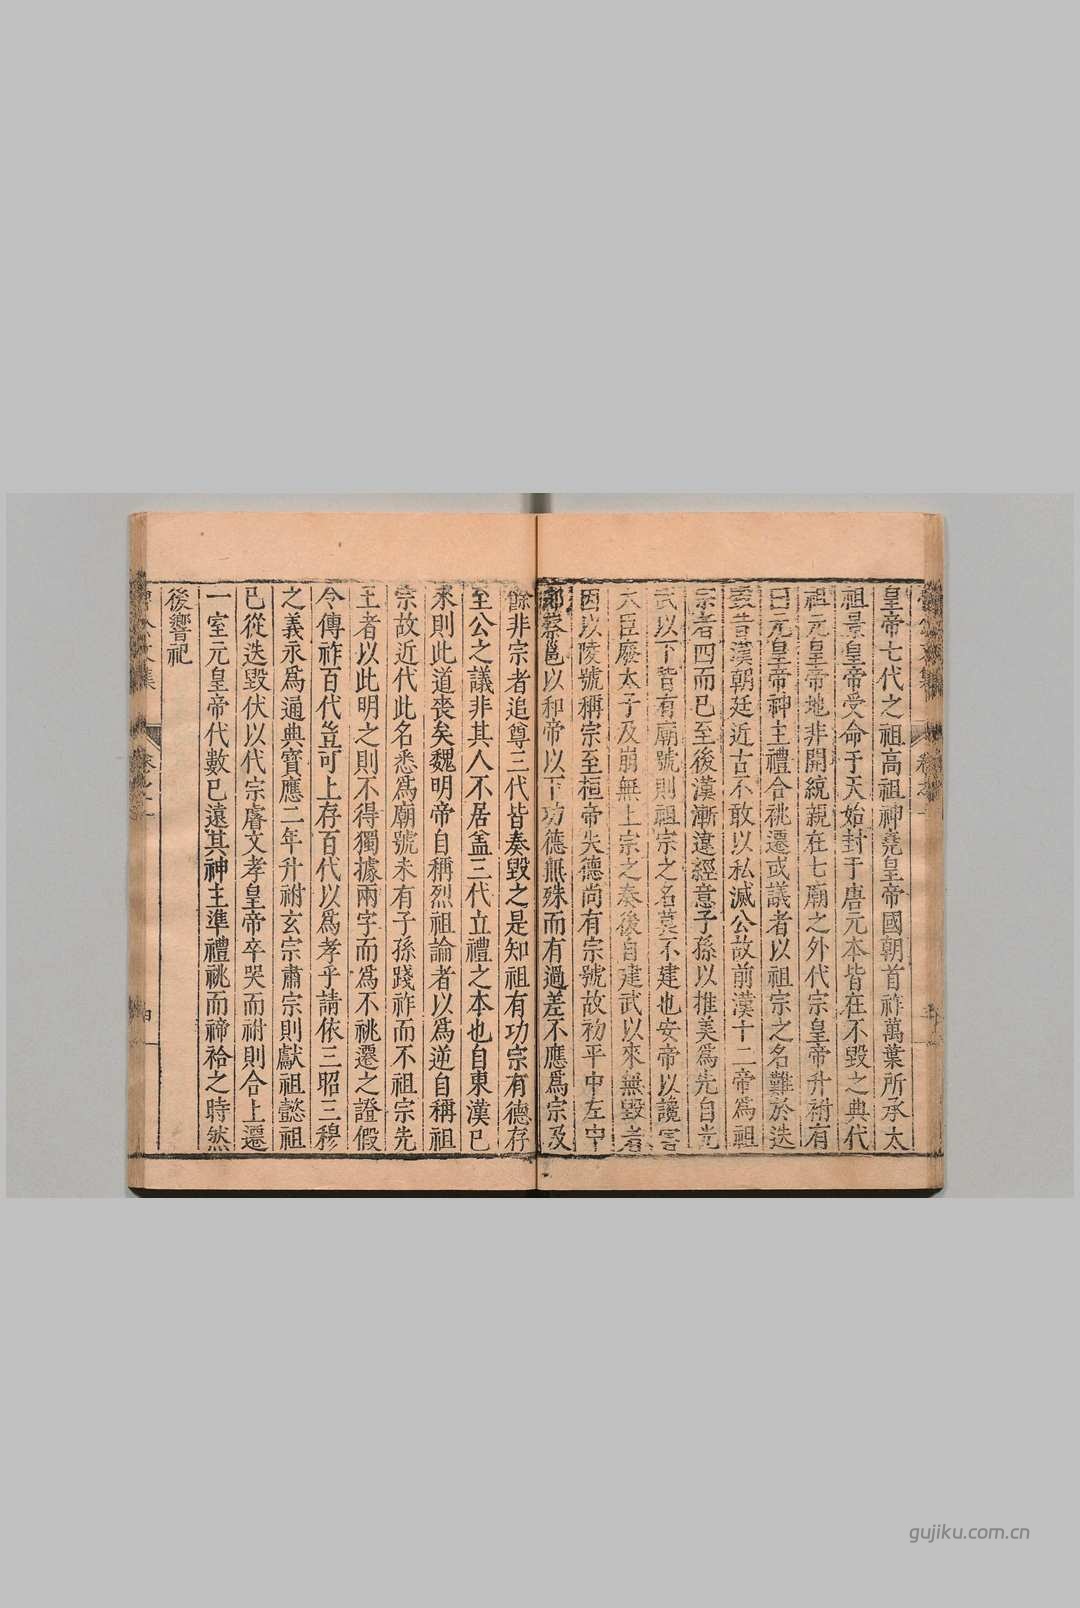 皇帝七代之祖高祖神堯皇帝國朝首祚萬葉所承太
祖景皇帝受命于天始封于唐元本皆在不毀之典代
祖元皇帝地非開統親在七廟之外代宗皇帝升祔有
日元皇帝神主禮合祧遷或議者以祖宗之名難於迭
毀昔漢朝廷近古不敢以私滅公故前漢十二帝爲祖
宗者四而已至後漢漸違經意子孫以推美爲先自光
武以下皆有廟號則祖宗之名莫不建也安帝以讒害
大臣廢太子及崩無上宗之奏後自建武以來無毀者
因以陵號稱宗至桓帝失德尚有宗號故初平中左中
郎蔡邕以和帝以下功德無殊而有過差不應爲宗及
餘非宗者追尊三代皆奏毀之是知祖有功宗有德存
至公之議非其人不居盖三代立禮之本也自東漢已
來則此道喪矣魏明帝自稱烈祖論者以爲逆自稱祖
宗故近代此名悉爲廟號未有子孫踐祚而不祖宗先
王者以此明之則不得獨據兩字而爲不祧遷之證假
令傳祚百代豈可上存百代以爲孝乎請依三昭三穆
之義永爲通典寶應二年升祔玄宗肅宗則獻祖懿祖
已從迭毀伏以代宗睿文孝皇帝卒哭而祔則合上遷
一室元皇帝代數已遠其神主準禮祧而禘祫之時然
後響祀
卷之一
四
gujiku.com.cn